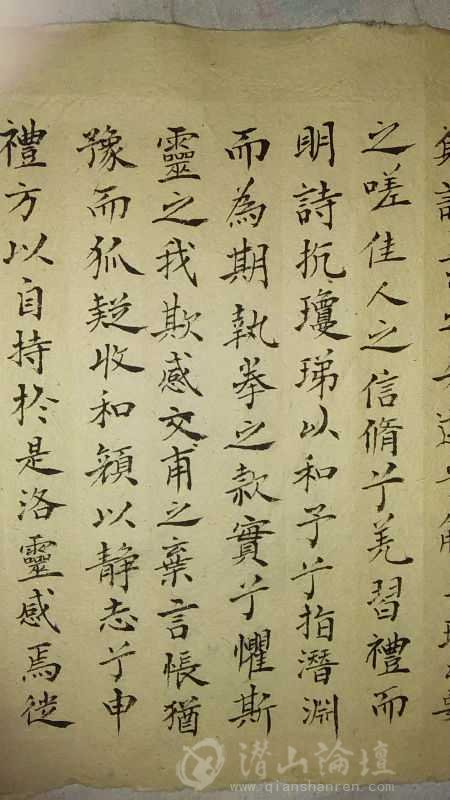 之嗟佳人之信脩兮羌習禮而
明詩抗瓊珶以和子兮指潛淵
而為期執拳之款實兮懼斯
靈之我欺感交甫之棄言悵猶
豫而狐疑收和顏以静志兮申
禮方以自持於是洛靈感焉徙
潜山論壇
www.qianshanren.com